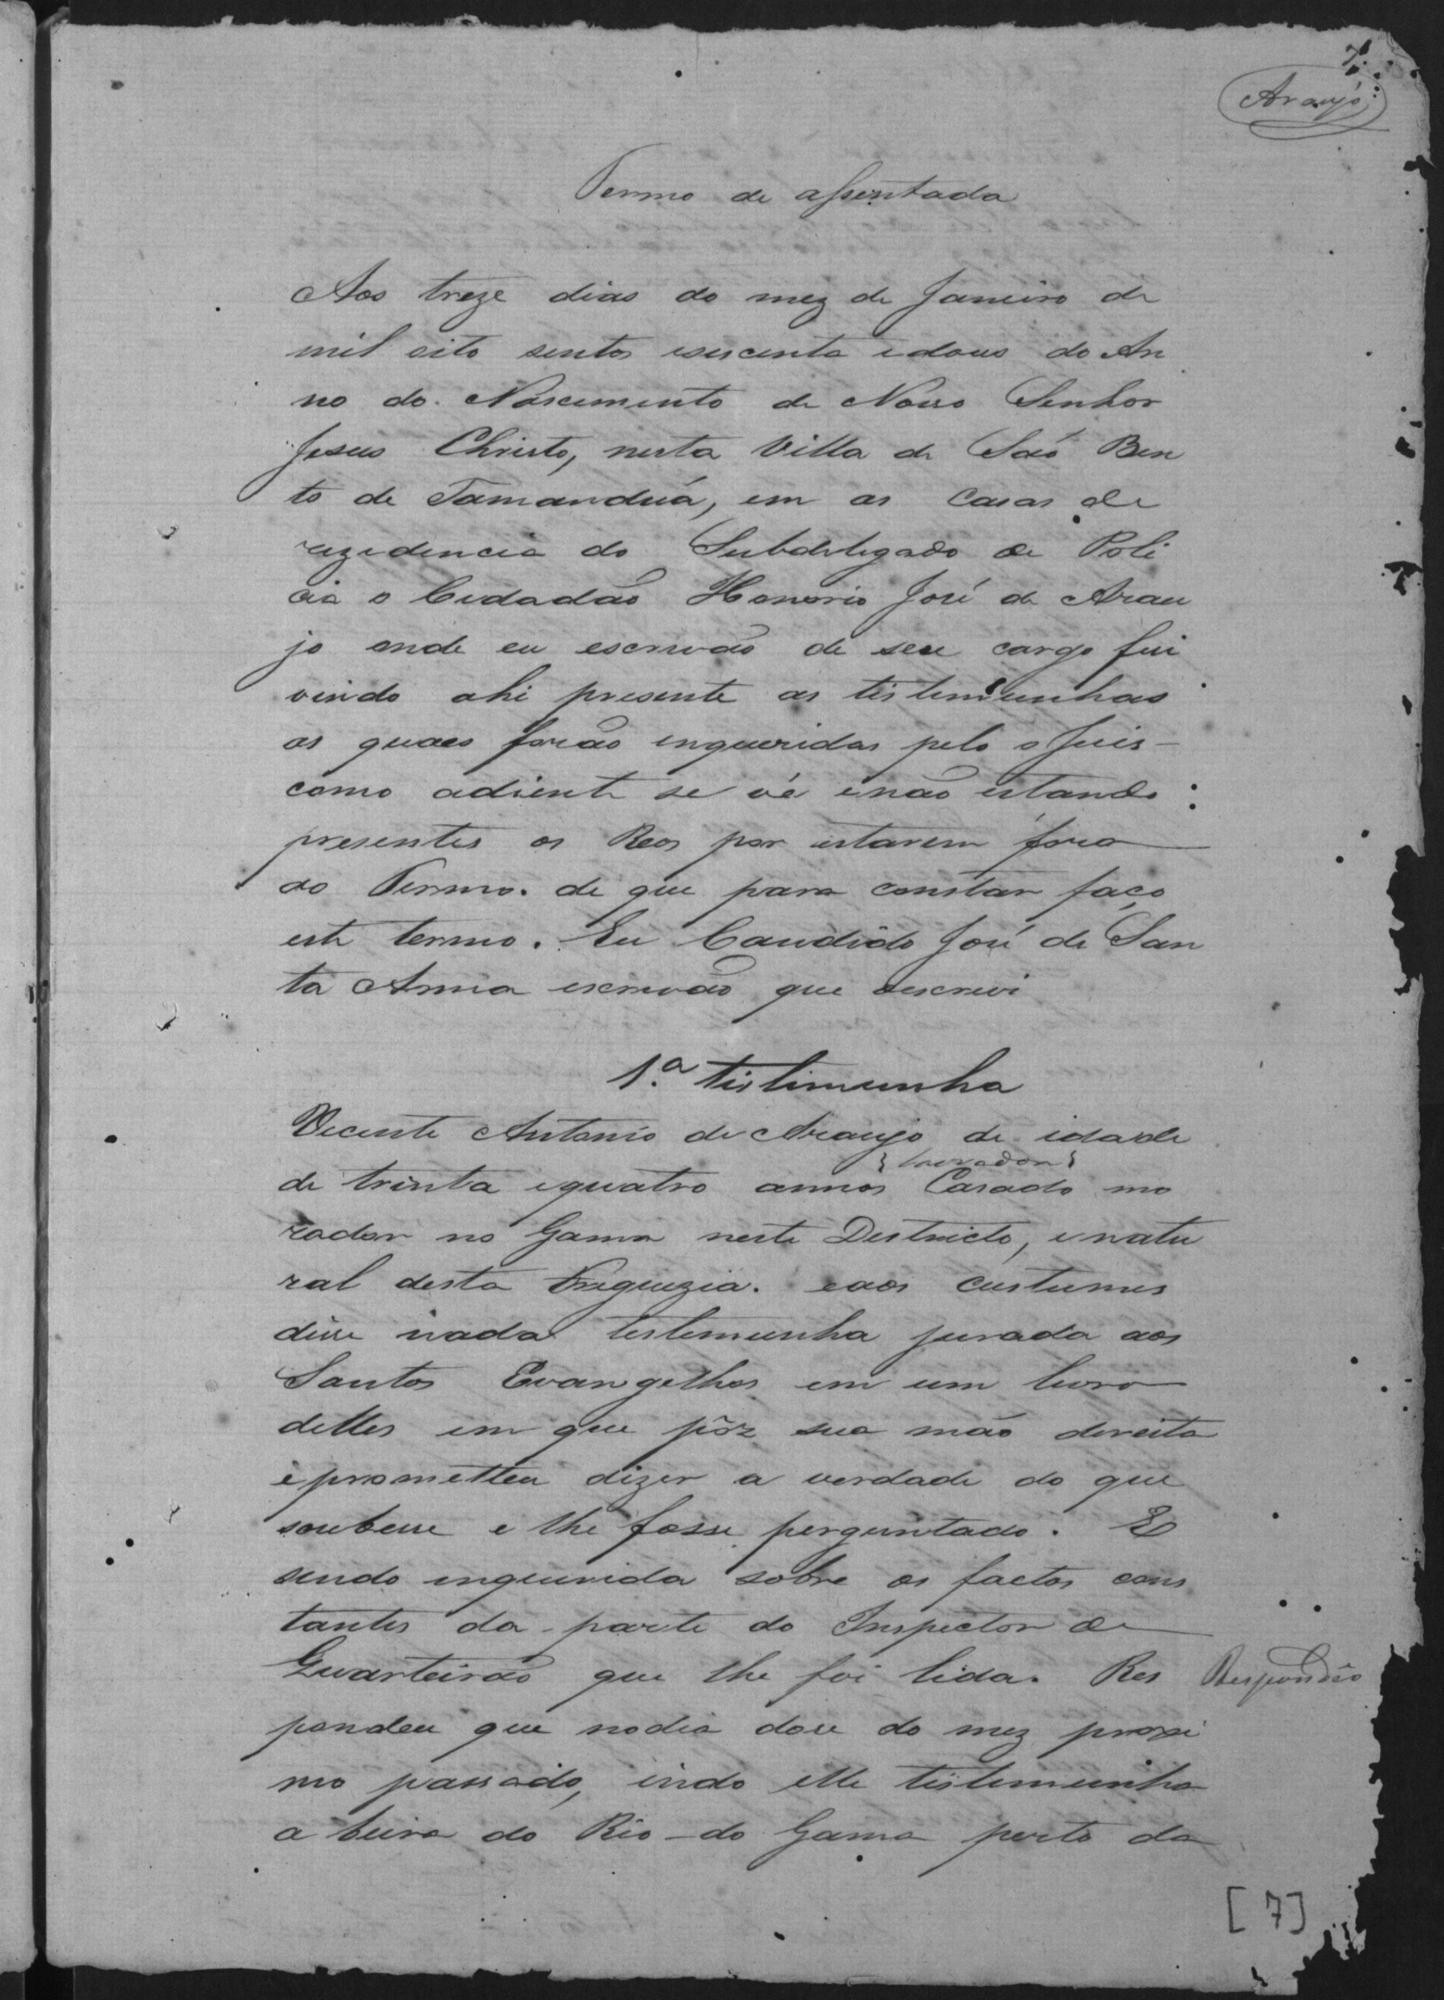 7
Araujo
Termo de assentada
Aos treze dias do mez de Janeiro de
mil oito sentos esecenta edous do An
no do Nascimento de Nosso Senhor
Jesus Christo, nesta Villa de São Ben
to de Tamanduá, em as casas de
rezidencia do Subdelegado de Poli
cia o Cidadão Honorio José de Arau
jo onde eu escrivão de seu cargo fui
vindo ahi presente as testemunhas
as quaes forão enqueridas pelo o Juis
como adiente se vê enão estando
presentes os Reos por estarem fora
do Termo. de que para constar faço
este termo. Eu Candido José de San
ta Anna escrivão que oescrevi
1.ª testimunha
Vecente Antonio de Araujo de idade
{lavrador}
de trinta equatro annos Casado mo
rador no Gama neste Destricto, enatu
ral desta Freguezia. eaos custumes
disse nada testemunha jurada aos
Santos Evangelhos em um livro
delles em que pôz sua mão dereita
eprometteu dizer a verdade do que
soubesse e lhe fosse perguntado. E
sendo enquerida sobre os factos cons
tantes da parte do Inspector de
Quarteirão que lhe foi lida. Res
Respondeo
pondeu que nodia dose do mez proxi
mo passado, indo elle testemunha
a beira do Rio do Gama perto da
[7]